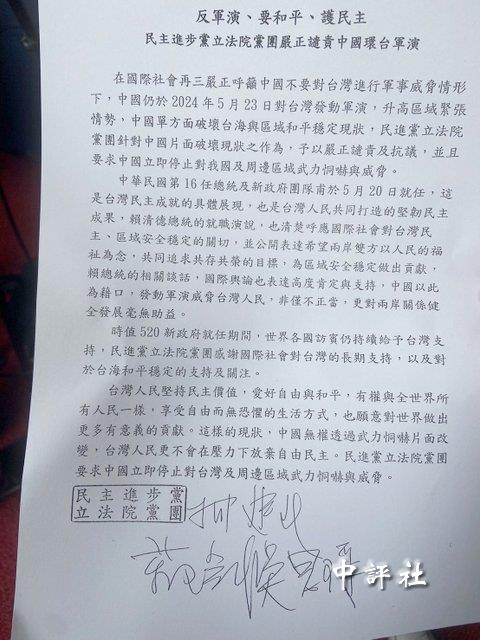 反軍演、要和平、護民主
民主進步黨立法院黨團嚴正譴責中國環台軍演
在國際社會再三嚴正呼籲中國不要對台灣進行軍事威脅情形
下，中國仍於2024年5月23日對台灣發動軍演，升高區域緊張
情勢，中國單方面破壞台海與區域和平穩定現狀，民進黨立法院
黨團針對中國片面破壞現狀之作為，予以嚴正譴責及抗議，並且
要求中國立即停止對我國及周邊區域武力恫嚇與威脅。
中華民國第16任總統及新政府團隊甫於5月20日就任，這
是台灣民主成就的具體展現，也是台灣人民共同打造的堅韌民主
成果，賴清德總統的就職演說，也清楚呼應國際社會對台灣民
主、區域安全穩定的關切，並公開表達希望兩岸雙方以人民的福
祉為念，共同追求共存共榮的目標，為區域安全穩定做出貢獻，
賴總統的相關談話，國際輿論也表達高度肯定與支持，中國以此
為藉口，發動軍演威脅台灣人民，非僅不正當，更對兩岸關係健
全發展毫無助益。
時值520新政府就任期間，世界各國訪賓仍持續給予台灣支
持，民進黨立法院黨團感謝國際社會對台灣的長期支持，以及對
於台海和平穩定的支持及關注。
台灣人民堅持民主價值，愛好自由與和平，有權與全世界所
有人民一樣，享受自由而無恐懼的生活方式，也願意對世界做出
更多有意義的貢獻。這樣的現狀，中國無權透過武力恫嚇片面改
變，台灣人民更不會在壓力下放棄自由民主。民進黨立法院黨團
要求中國立即停止對台灣及周邊區域武力恫嚇與威脅。
民主進步黨
立法院黨團
中評社